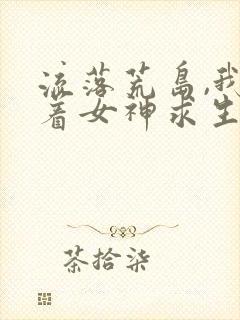 流落荒岛,我
着女神求生
茶拾柒